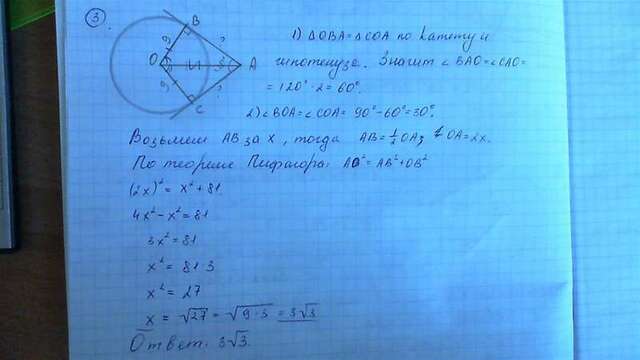 3
B
9
?
O
A
9
?
C
1) △OBA=△COA по катету и
гипотенузе. Значит ∠BAO=∠CAO=
= 120° · 2 = 60°.
2) ∠BOA=∠COA= 90°-60°=30°.
Возьмем AB за x, тогда AB=½OA; OA=2x.
По теореме Пифагора: AO²=AB²+OB²
(2x)² = x² + 81.
4x² - x² = 81
3x² = 81
x² = 81 : 3
x² = 27
x = √27 = √9·3 = 3√3
Ответ: 3√3.